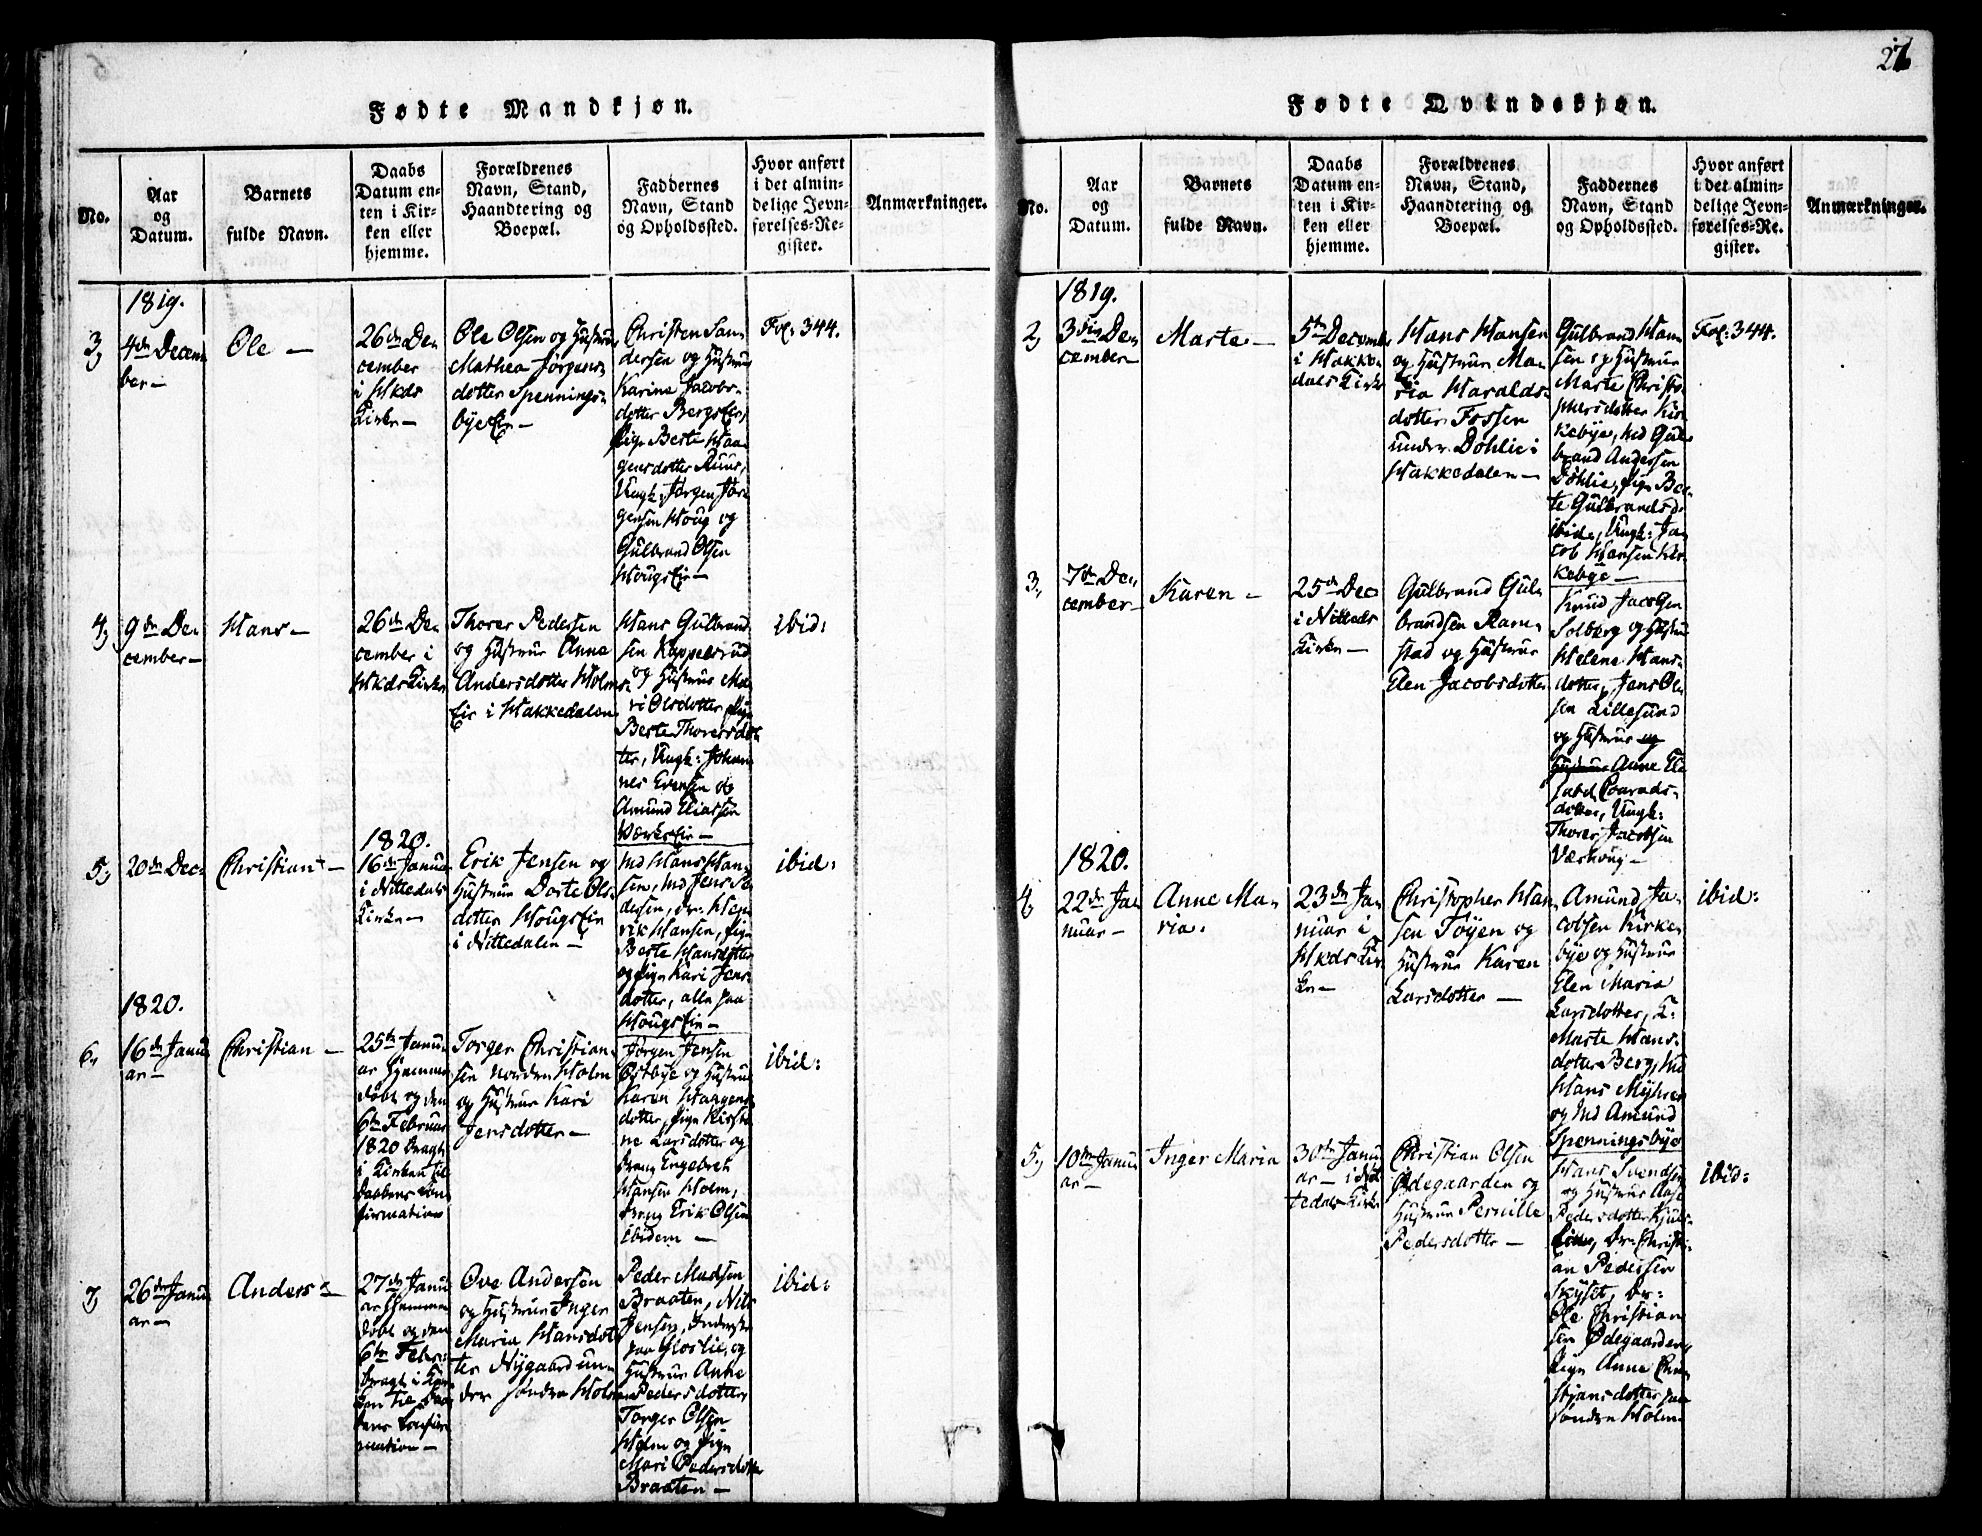 27
Fødte Mandkjøn.
No.
Aar
og
Datum.
Barnets
fulde Navn.
Daabs
Datum en-
ten i Kir-
ken eller
hjemme.
Forældrenes
Navn, Stand,
Haandtering og
Boepæl.
Faddernes
Navn, Stand
og Opholdssted.
Hvor anført
i det almin-
delige Jevn-
førelses-Re-
gister.
Anmærkninger.
1819.
3,
4de Decem
ber—
Ole —
26de De-
cember
i Hkds
Kirke—
Ole Olsen og Hustrue
Mathea Jørgens-
dotter Spennings-
bye Eie—
Christen San-
dersen og Hustrue
Karine Jacobs-
dotter Bergs Eie,
Pige Berte Haa-
gensdotter Ruus,
Ungk: Jørgen Jør-
gensen Houg og
Gulbrand Olsen
Hougs Eie—
Fol: 344.
4,
9de De-
cember—
Hans—
26de De-
cember i
Hkds Kirke
Thorer Pedersen
og Hustrue Anne
Andersdotter Holms-
Eie i Hakkedalen
Hans Gulbrand-
sen Kappelsrud
og Hustrue Ma-
ri Olsdotter, Pige
Berte Thorersdot-
ter, Ungk: Johan-
nes Evensen og
Amund Eliassen
Værks Eie—
ibid:
5,
20de Dec:
Christian —
1820.
16de Janua
i Nittedals
Kirke—
Erik Jensen og
Hustrue Dorte Ols-
dotter Hougs Eie
i Nittedalen—
Md Hans Han-
sen, Md Jens Pe-
dersen, Dr: Hen-
rik Hansen, Pige
Berte Hansdotter
og Pige Kari Jens-
dotter, alle paa
Hougs Eie—
ibid:
1820.
6,
16de Janu-
ar—
Christian —
25de Janu-
ar hjemme-
døbt og den
6te Februar
1820 bragt
i Kirken til
Daabens Con-
firmation
Torger Christian-
sen nordre Holm
og Hustrue Kari
Jensdotter—
Jørgen Jensen
Østbye og Hustrue
Karen Haagens-
dotter, Pige Kirsti-
ne Larsdotter og
Dreng Engebret
Hansen Holm,
Dreng Erik Olsen
ibidem —
ibid:
7,
26de Janu
ar—
Anders —
27de Janu
ar hjemme
døbt og den
6te Febr:
bragt i Kir-
ken til Daa-
bens Confir-
mation—
Ove Andersen
og Hustrue Inger
Maria Hansdot-
ter Nygaard un-
der søndre Holm
Peder Madsen
Braaten, Nils
Jensen,
paa Gloslie, og
Hustrue Anne
Pedersdotter,
Torger Olsen
Holm og Pige
Mari Pedersdotter
Braaten —
ibid:
Fødte Qvindekjøn.
No.
Aar
og
Datum.
Barnets
fulde Navn.
Daabs
Datum en-
ten i Kir-
ken eller
hjemme.
Forældrenes
Navn, Stand,
Haandtering og
Boepæl.
Faddernes
Navn, Stand
og Opholdssted.
Hvor anført
i det almin-
delige Jevn-
førelses-Re-
gister.
Anmærkninger.
1819.
2,
3die De-
cember—
Marte —
5te December
i Hakke-
dals Kirke
Hans Hansen
og Hustrue Ma-
ria Haralds-
dotter Fossen
under Døhlie i
Hakkedalen —
Gulbrand Han-
sen og Hustrue
Marte Christo-
phersdotter Kir-
kebye, Md Gul-
brand Andersen
Døhlie, Pige Ber-
te Gulbrandsd:
ibid:, Ungk: Ja-
cob Hansen Kir-
kebye —
Fol: 344.
3,
7de De-
cember—
Karen —
25de Dec
i Nitteds
Kirke —
Gulbrand Gul-
brandsen Ram-
stad og Hustrue
Elen Jacobsdotter
Knud Jacobsen
Solberg og Hustrue
Helene Hans-
dotter, Jens Ol-
sen Lillesund
og Hustrue og
Hustrue Anne Eli-
sabet Conrads-
dotter, Ungk:
Thorer Jacobsen
Værhoug —
1820.
4,
22de Ja-
nuar—
Anne Ma-
ria:
23de Ja-
nuar i
Hkds Kir-
ke—
Christopher Han-
sen Tøyen og
Hustrue Karen
Larsdotter —
Amund Ja-
cobsen Kirke-
bye og Hustrue
Elen Maria
Larsdotter, K:
Marte Hans-
dotter Berg, Md
Hans Myhrer
og Md Amund
Spenningsbye
ibid:
5,
10de Janu
ar—
Inger Maria
30te Janu
ar— i Nit-
tedals Kirke
Christian Olsen
Ødegaarden og
Hustrue Pernille
Pedersdotter —
Hans Svendsen
og Hustrue Aase
Pedersdotter Kjuls-
Dr: Christi-
an Pedersen
Skyset, Dr:
Ole Christian-
sen Ødegaarden,
Pige Anne Chri-
stiansdotter paa
søndre Holm
ibid: